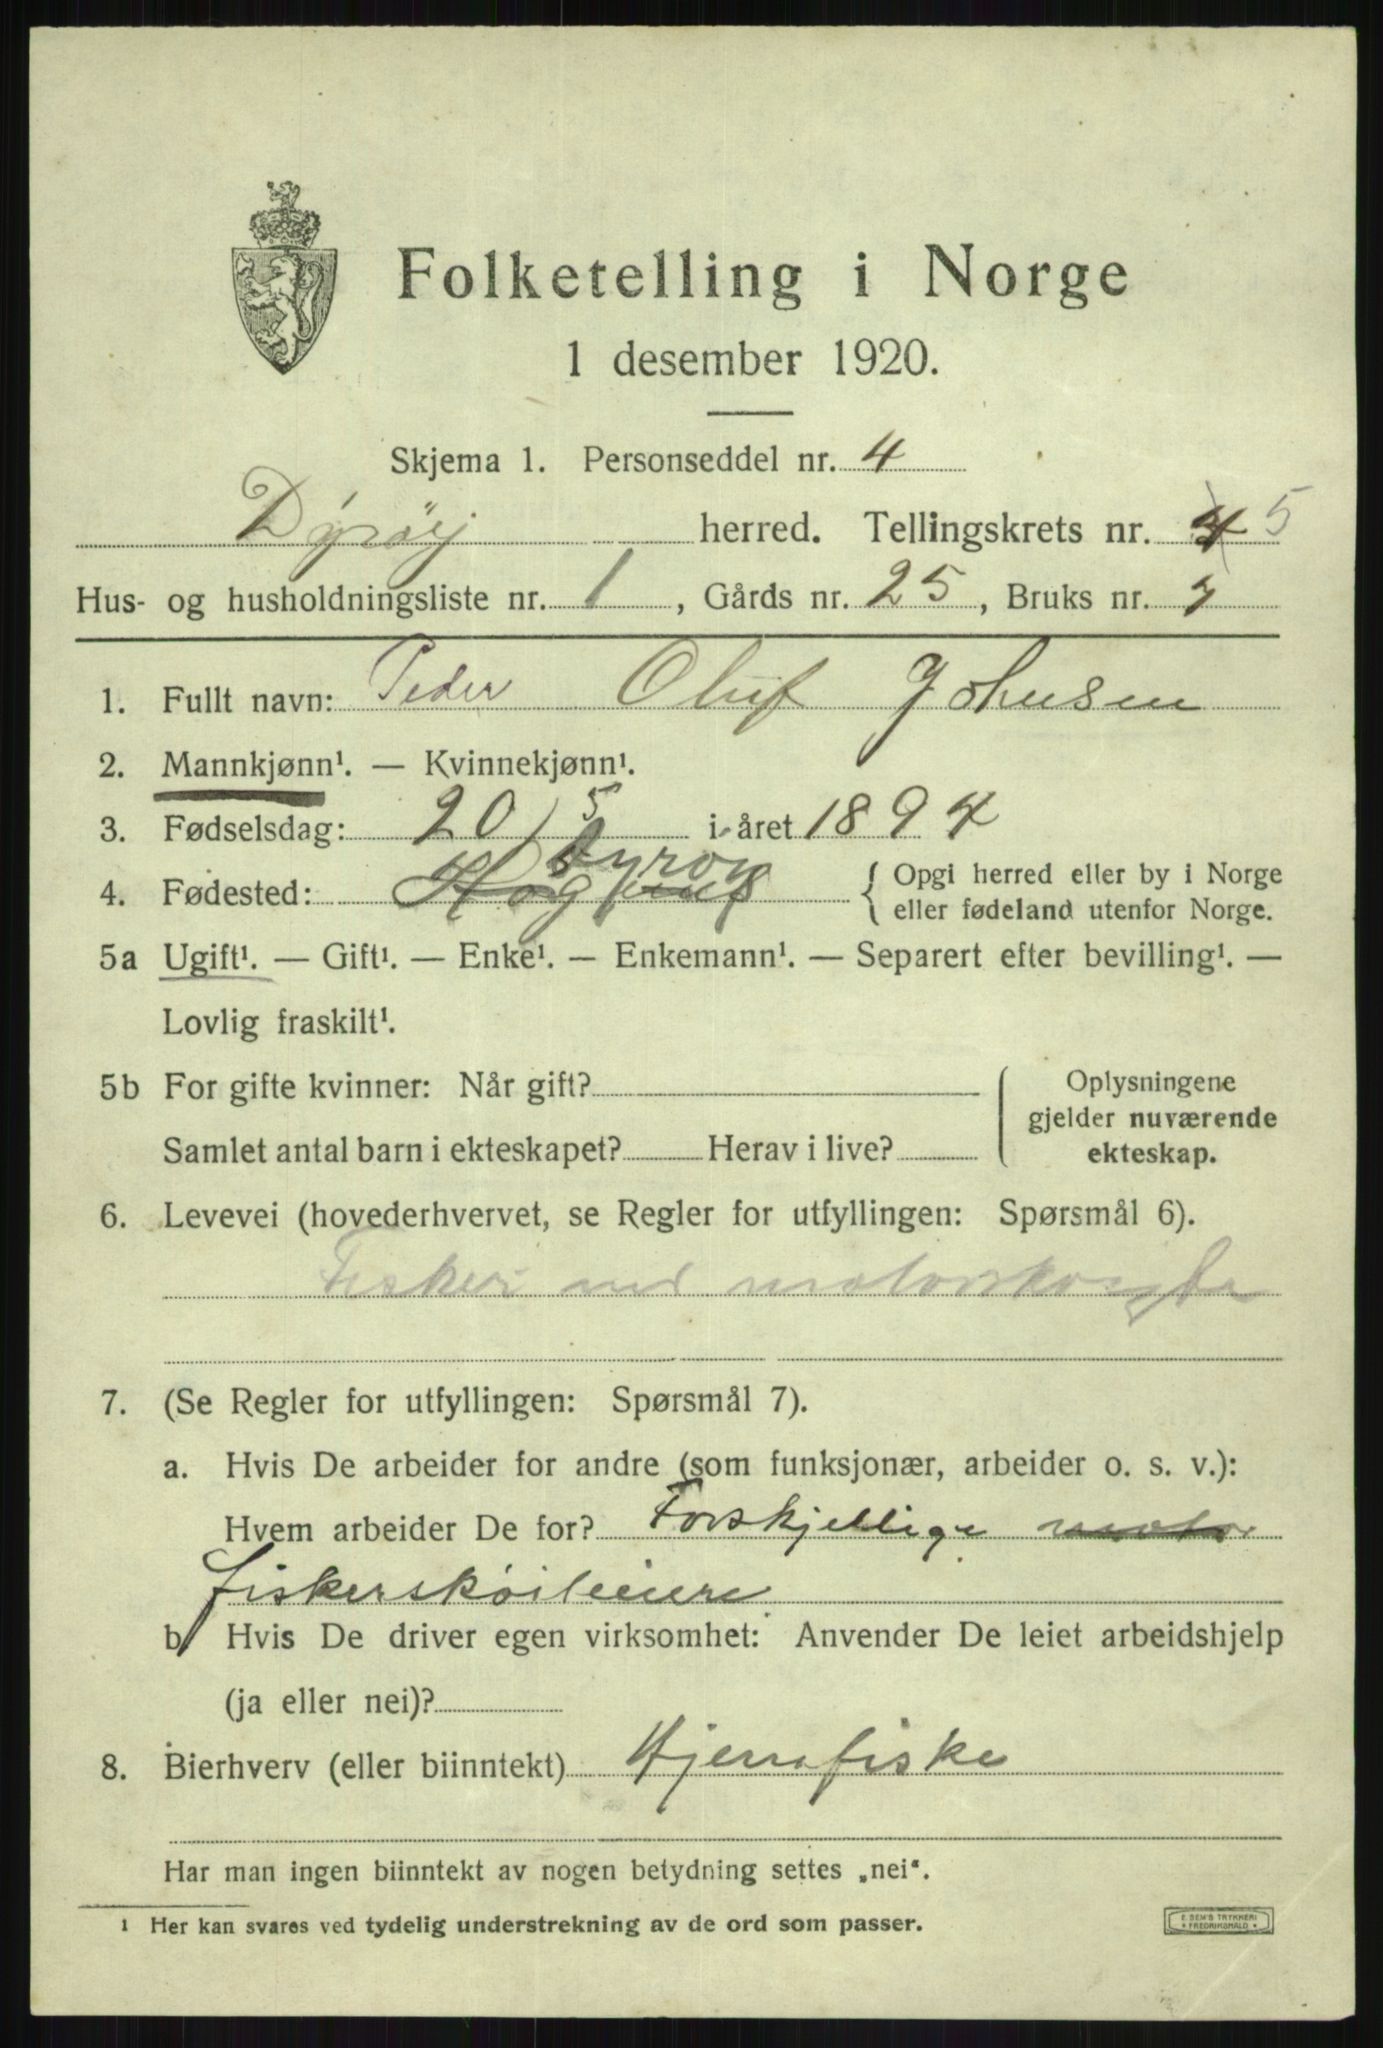 Folketelling i Norge
1 desember 1920.
Skjema 1. Personseddel nr. 4
Dyröy herred. Tellingskrets nr. 4 5
Hus- og husholdningsliste nr. 1, Gårds nr. 25, Bruks nr.
1. Fullt navn: Peder Oluf Johnsen
2. Mannkjønn¹. — Kvinnekjønn¹.
3. Fødselsdag: 20/5 i året 1894
Dyroy
4. Fødested: { Opgi herred eller by i Norge
eller fødeland utenfor Norge.
5a Ugift¹. — Gift¹. — Enke¹. — Enkemann¹. — Separert efter bevilling¹. —
Lovlig fraskilt¹.
5b For gifte kvinner: Når gift? { Oplysningene
gjelder nuværende
Samlet antal barn i ekteskapet? Herav i live? ekteskap.
6. Levevei (hovederhvervet, se Regler for utfyllingen: Spørsmål 6).
Fisker med
7. (Se Regler for utfyllingen: Spørsmål 7).
a. Hvis De arbeider for andre (som funksjonær, arbeider o. s. v.):
Hvem arbeider De for? Forskjellige motor
fiskersköiteeiere
b Hvis De driver egen virksomhet: Anvender De leiet arbeidshjelp
(ja eller nei)?
8. Bierhverv (eller biinntekt) Hjemafiske
Har man ingen biinntekt av nogen betydning settes „nei“.
¹ Her kan svares ved tydelig understrekning av de ord som passer.
E. SEM'S TRYKKERI
FREDRIKSHALD